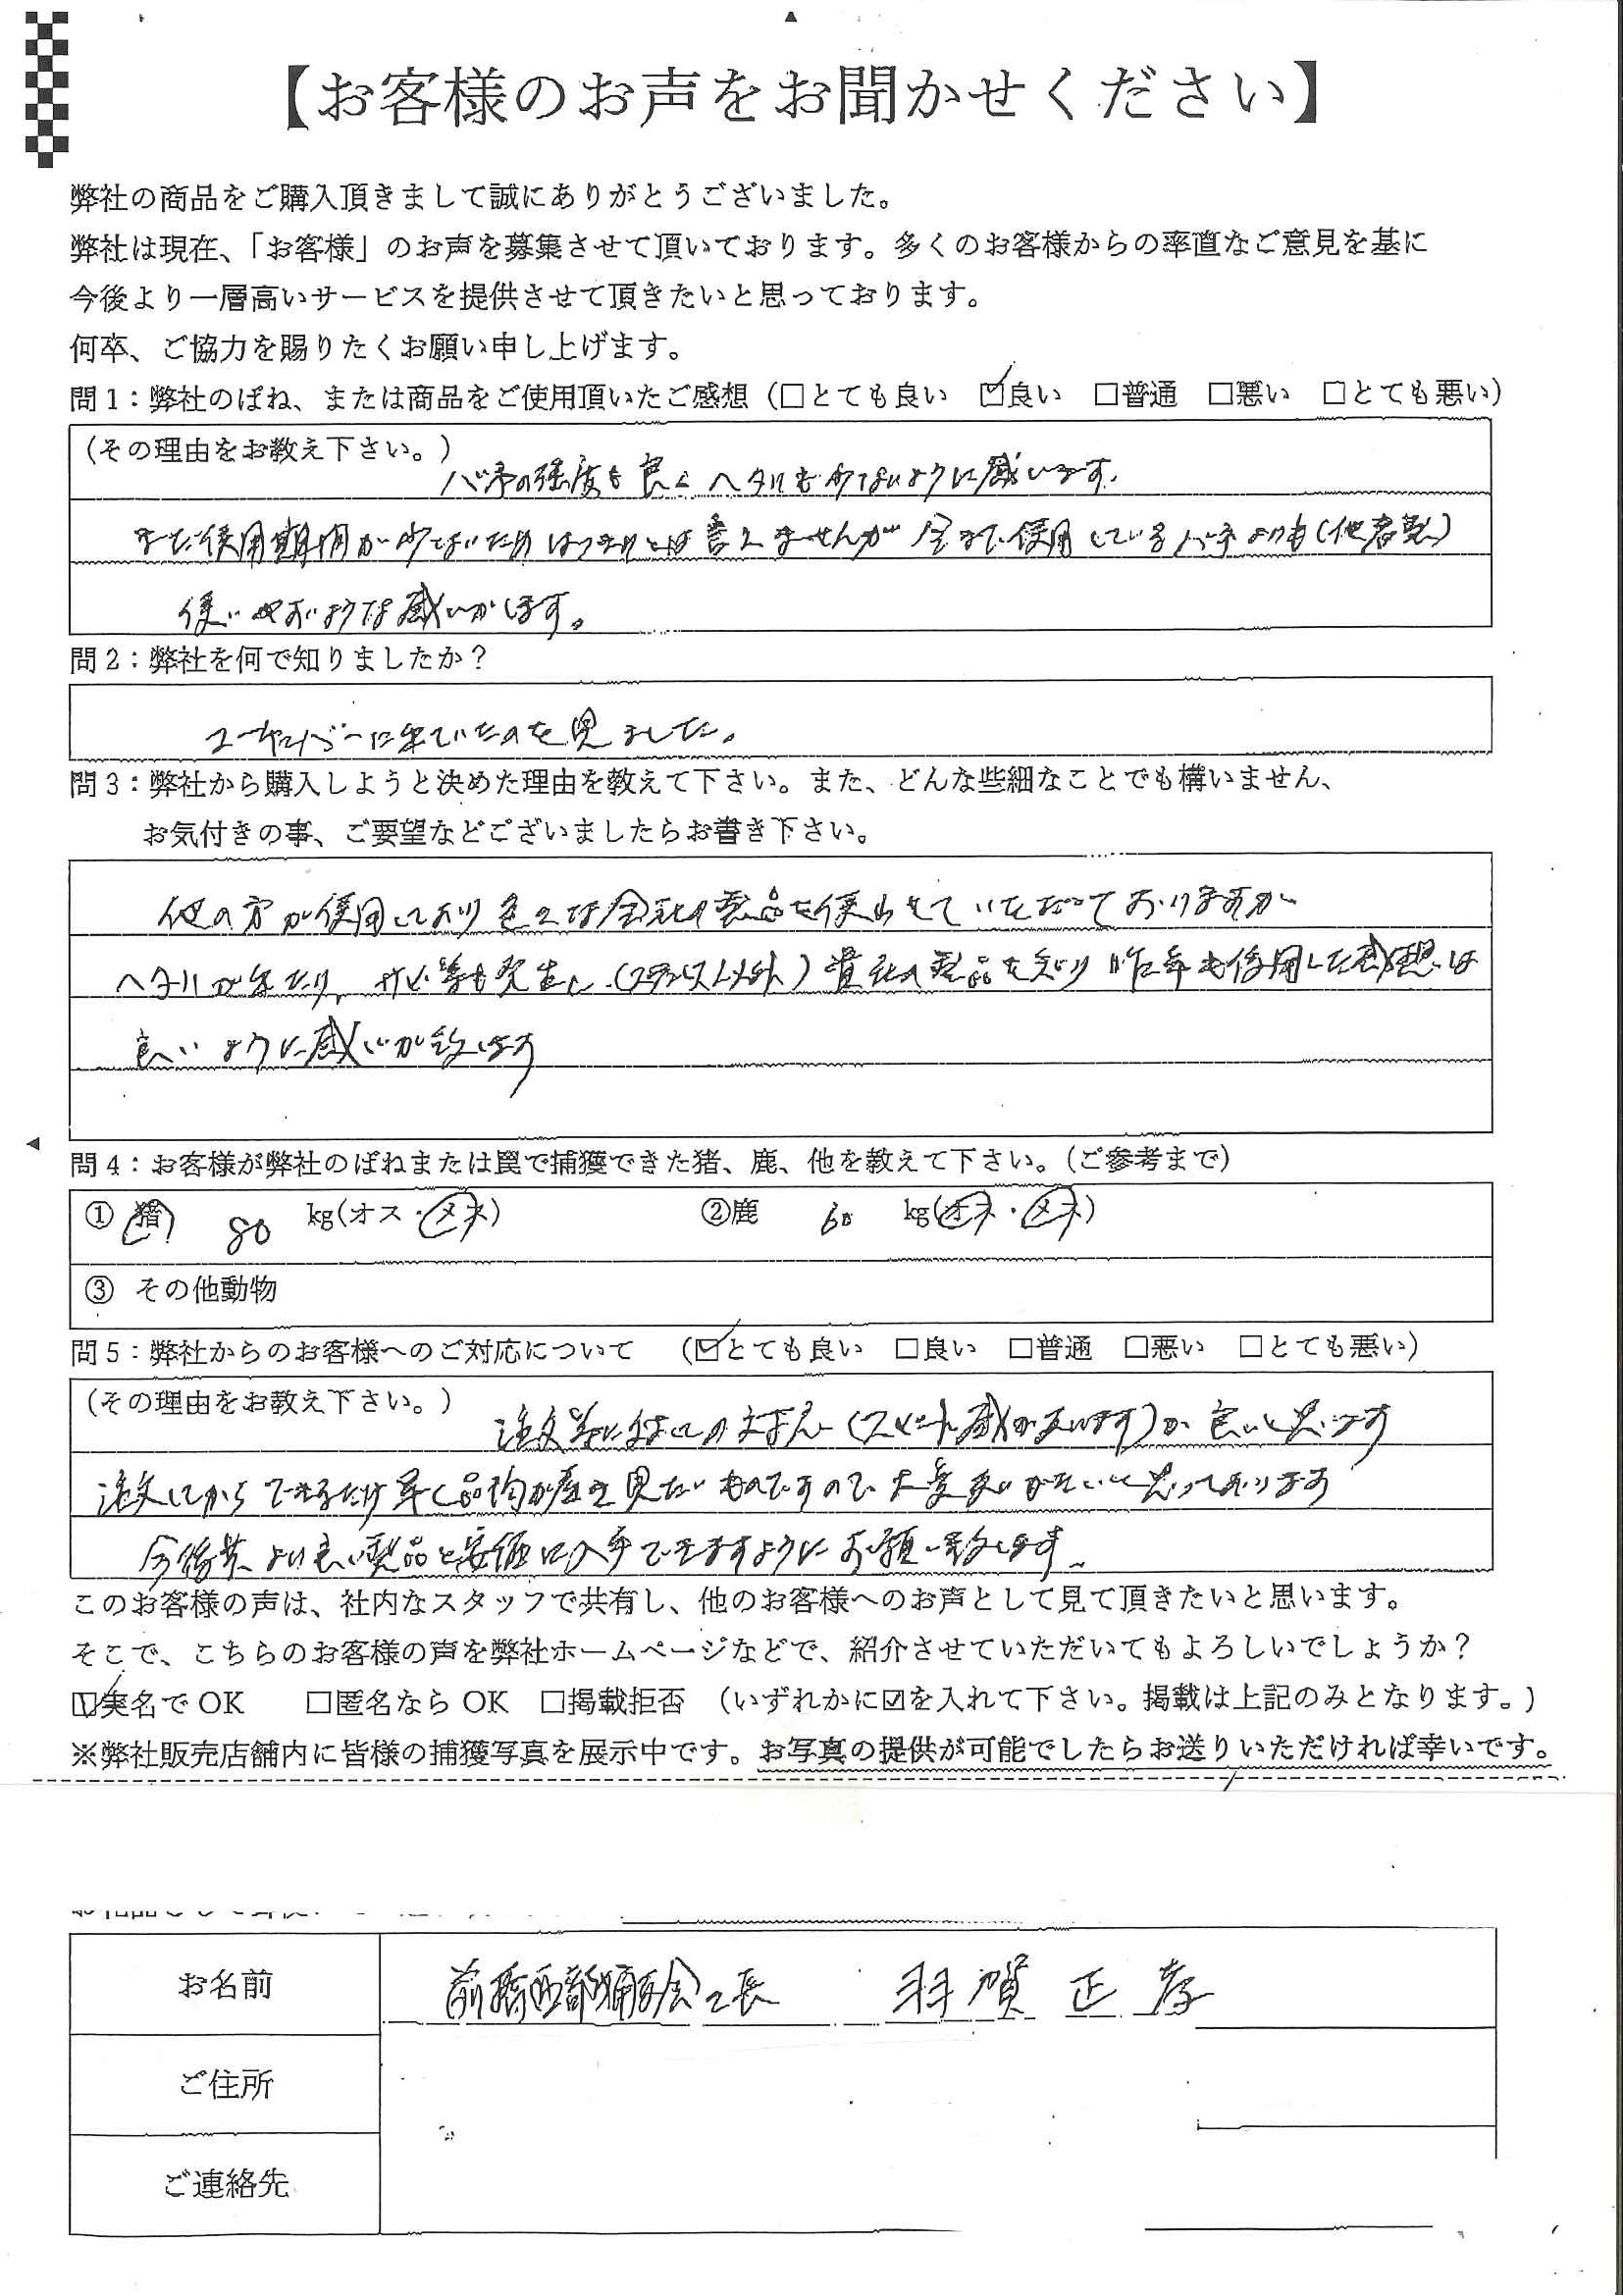 【お客様のお声をお聞かせください】
弊社の商品をご購入頂きまして誠にありがとうございました。
弊社は現在、「お客様」のお声を募集させて頂いております。多くのお客様からの率直なご意見を基に
今後より一層高いサービスを提供させて頂きたいと思っております。
何卒、ご協力を賜りたくお願い申し上げます。
問1:弊社のばね、または商品をご使用頂いたご感想(□とても良い ☑良い □普通 □悪い □とても悪い)
(その理由をお教え下さい。)
バネの強度も良くヘタリも少ないように感じます。
まだ使用期間が少ないためはっきりとは言えませんが今まで使用しているバネよりも(他者製)
使いやすいような感じがします。
問2:弊社を何で知りましたか?
ユーザーに来ていたのを見ました。
問3:弊社から購入しようと決めた理由を教えて下さい。また、どんな些細なことでも構いません、
お気付きの事、ご要望などございましたらお書き下さい。
他の方が使用しており色々な会社の製品を使わせていただいておりますが
ヘタリが来たり、サビ等も発生し(ステンレス以外)貴社の製品を知り昨年も使用した感想は
良いように感じが致します
問4:お客様が弊社のばねまたは罠で捕獲できた猪、鹿、他を教えて下さい。(ご参考まで)
① 猪 80 kg(オス・メス) ②鹿 60 kg(オス・メス)
③ その他動物
問5:弊社からのお客様へのご対応について (☑とても良い □良い □普通 □悪い □とても悪い)
(その理由をお教え下さい。)
注文等に 対して の (スピード感があります)が良いと思います
注文してからできるだけ早く品物が 見たいものですので大変ありがたいと思っております
今後共、より良い製品を安価に入手できますようにお願い致します。
このお客様の声は、社内なスタッフで共有し、他のお客様へのお声として見て頂きたいと思います。
そこで、こちらのお客様の声を弊社ホームページなどで、紹介させていただいてもよろしいでしょうか?
☑実名でOK □匿名ならOK □掲載拒否 (いずれかに☑を入れて下さい。掲載は上記のみとなります。)
※弊社販売店舗内に皆様の捕獲写真を展示中です。お写真の提供が可能でしたらお送りいただければ幸いです。
お名前 前橋西部猟友会 長 羽賀 正孝
ご住所
ご連絡先